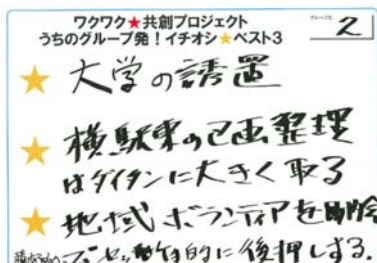 ワクワク★共創プロジェクト
うちのグループ発!イチオシ★ベスト3
2
★ 大学の誘置
★ 横駅東の区画整理
はダイタンに大きく取る
★ 地域ボランティアを
的に後押しする.